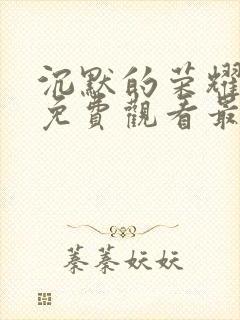 沉默的荣耀
免費觀看最
蓁蓁妖妖